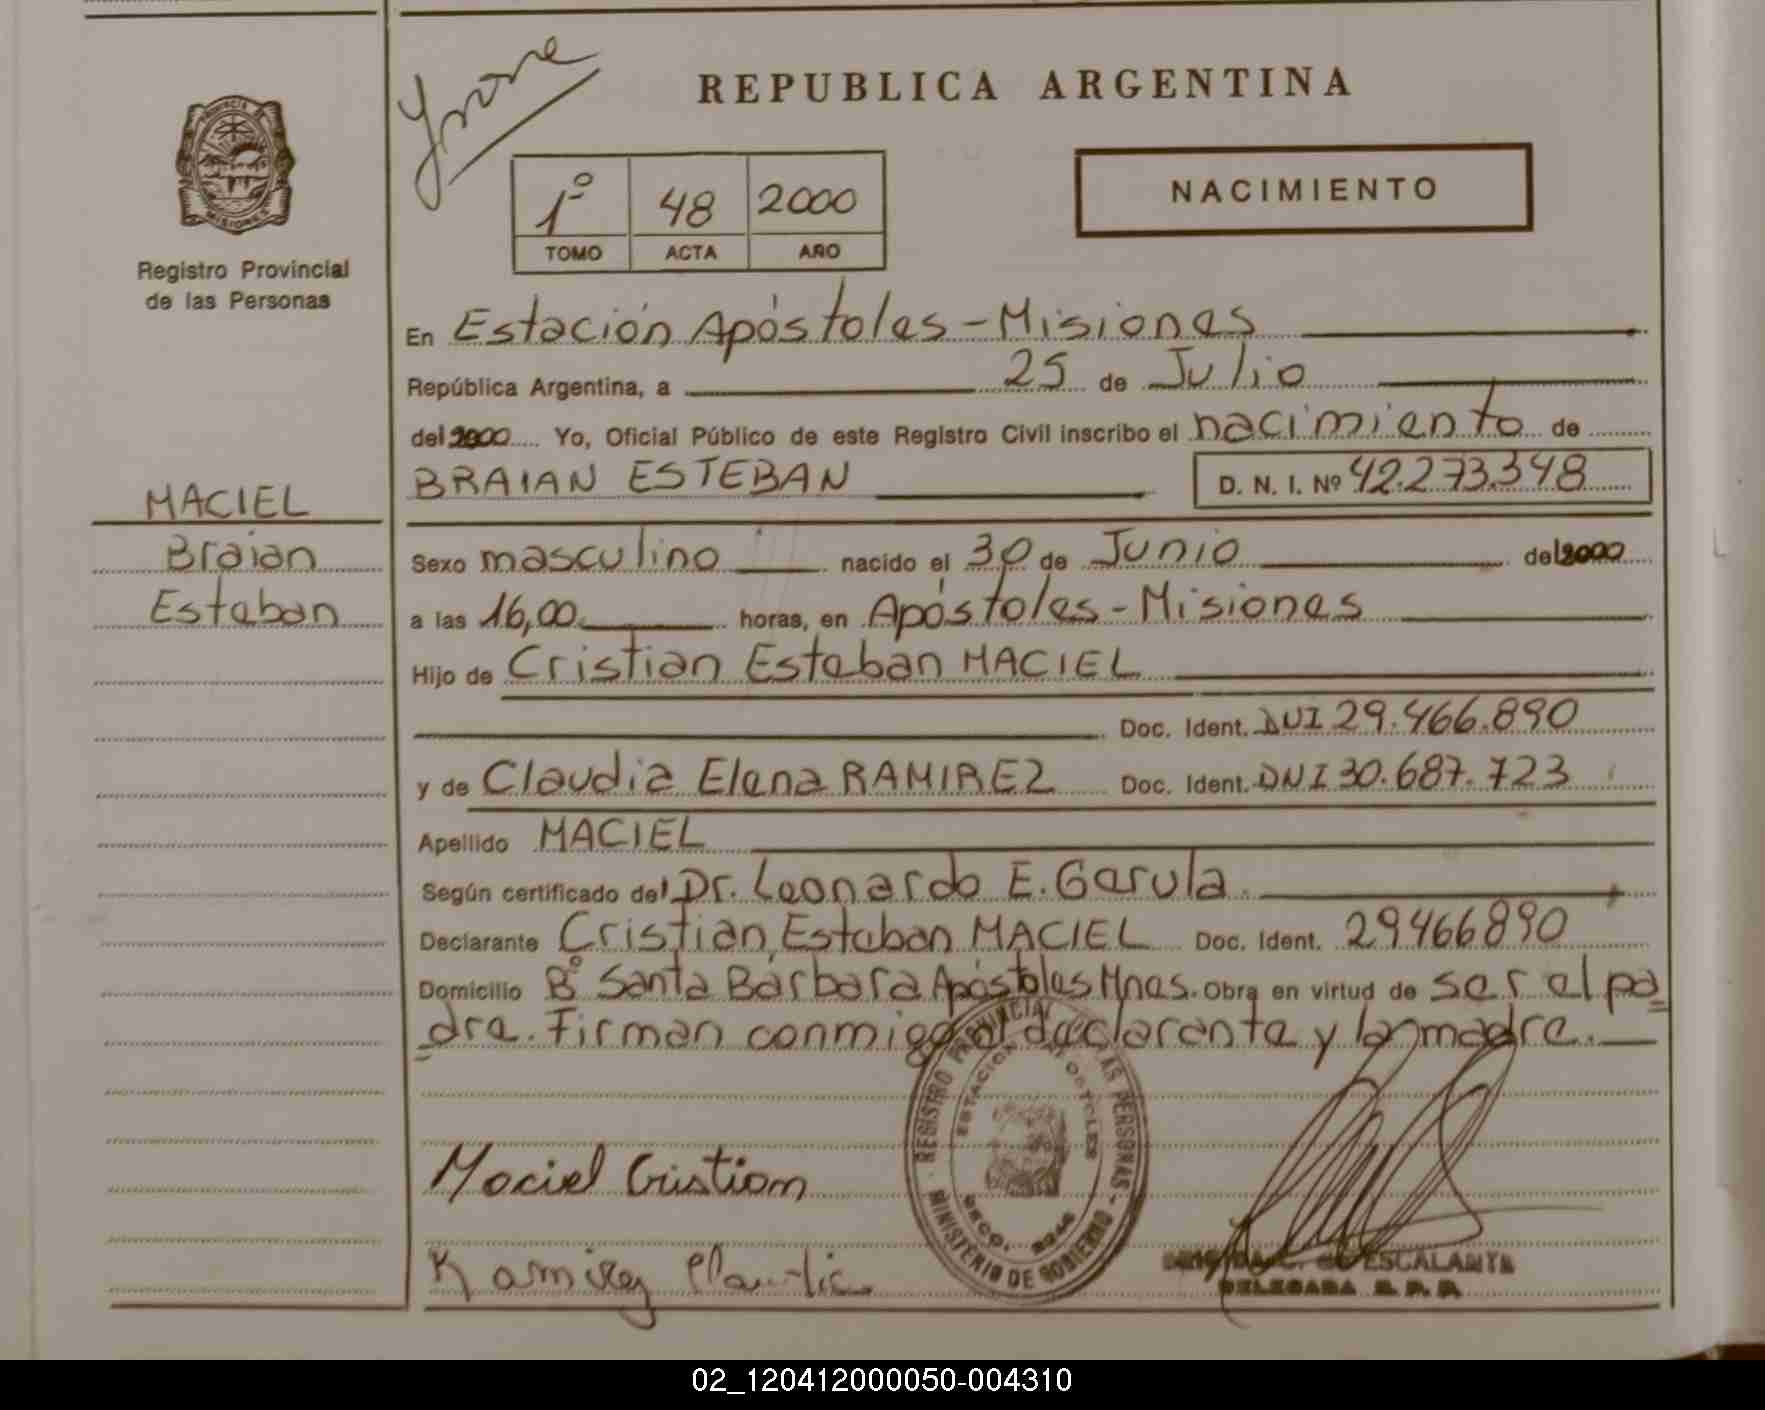 Yvone
REPUBLICA ARGENTINA
NACIMIENTO
1º 48 2000
TOMO ACTA AÑO
PROVINCIA
MISIONES
Registro Provincial
de las Personas
En Estación Apóstoles - Misiones
República Argentina, a 25 de Julio
del 2000 Yo, Oficial Público de este Registro Civil inscribo el nacimiento de
BRAIAN ESTEBAN D. N. I. Nº 42.273.348
MACIEL
Braian
Esteban
Sexo masculino nacido el 30 de Junio del 2000
a las 16,00 horas, en Apóstoles - Misiones
Hijo de Cristian Esteban MACIEL
Doc. Ident. DNI 29.466.890
y de Claudia Elena RAMIREZ Doc. Ident. DNI 30.687.723
Apellido MACIEL
Según certificado del Dr. Leonardo E. Garula
Declarante Cristian Esteban MACIEL Doc. Ident. 29466890
Domicilio Bº Santa Bárbara Apóstoles Mnes. Obra en virtud de ser el pa
dre. Firman conmigo el declarante y la madre.
REGISTRO PROVINCIAL DE LAS PERSONAS - MINISTERIO DE GOBIERNO -
ESTACION APOSTOLES
Maciel Cristian
Ramirez Claudia
DE ESCALANTE
DELEGADA R. P. P.
02_120412000050-004310